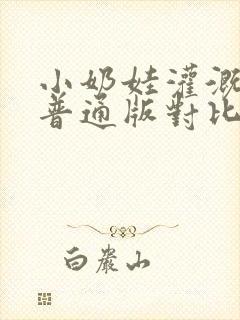 小奶娃灌溉
普通版對比
白巖山